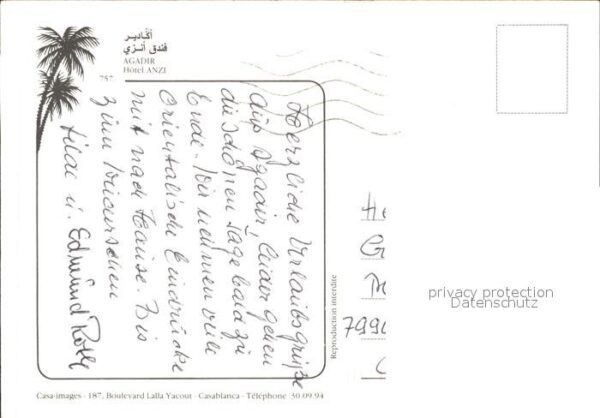 أكادير
فندق أنزي
AGADIR
Hôtel ANZI
757
Herzliche Urlaubsgrüße
aus Agadir, leider gehen
die schönen Tage bald zu
Ende. Wir nehmen viele
Orientalische Eindrücke
mit nach Hause. Bis
zum Wiedersehen
u. Edmund
Reproduction interdite
He
G
799
privacy protection
Datenschutz
Casa-images - 187, Boulevard Lalla Yacout - Casablanca - Téléphone 30.09.94